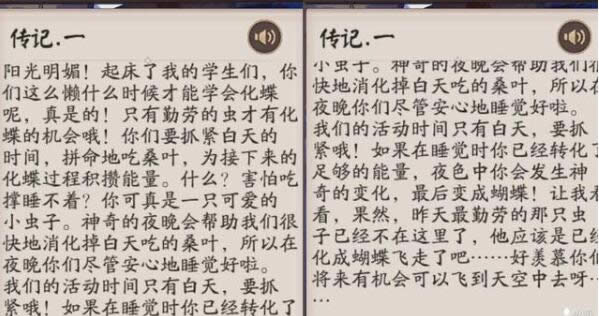 传记.一
阳光明媚！起床了我的学生们，你
们这么懒什么时候才能学会化蝶
呢，真是的！只有勤劳的虫才有化
蝶的机会哦！你们要抓紧白天的
时间，拼命地吃桑叶，为接下来的
化蝶过程积攒能量。什么？害怕吃
撑睡不着？你可真是一只可爱的
小虫子。神奇的夜晚会帮助我们很
快地消化掉白天吃的桑叶，所以在
夜晚你们尽管安心地睡觉好啦。
我们的活动时间只有白天，要抓
紧哦！如果在睡觉时你已经转化了
传记.一
小虫子。神奇的夜晚会帮助我们很
快地消化掉白天吃的桑叶，所以在
夜晚你们尽管安心地睡觉好啦。
我们的活动时间只有白天，要抓
紧哦！如果在睡觉时你已经转化了
足够的能量，夜色中你会发生神
奇的变化，最后变成蝴蝶！让我看
看，果然，昨天最勤劳的那只虫
子已经不在这里了，他应该是已经
化成蝴蝶飞走了吧……好羡慕你们
将来有机会可以飞到天空中去呀…
…